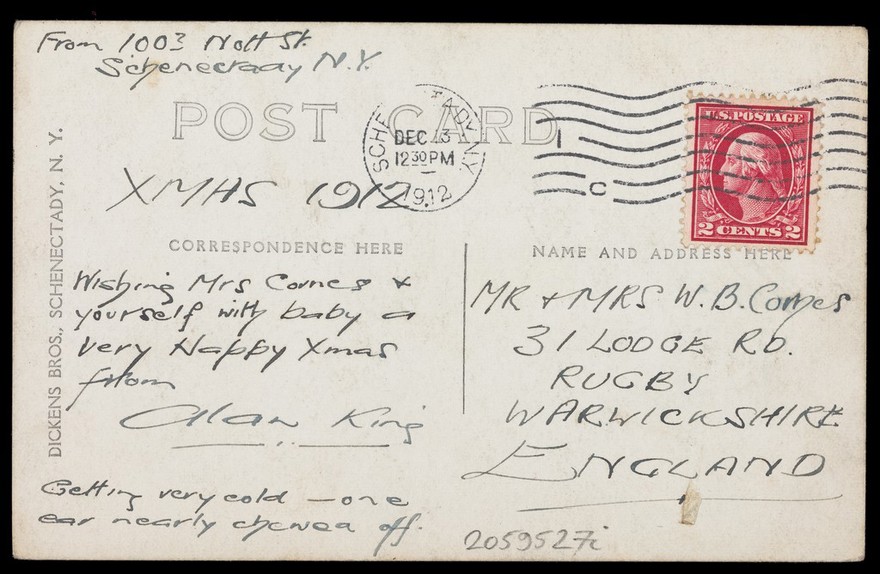 From 1003 Nott St.
Schenectady N.Y.
POST CARD
SCHENECTADY, N.Y.
DEC 13
12 30 PM
1912
C
U.S. POSTAGE
2 CENTS 2
XMAS 1912
DICKENS BROS., SCHENECTADY, N. Y.
CORRESPONDENCE HERE
Wishing Mrs Comes &
yourself with baby a
very Happy Xmas
from
Alan King
Getting very cold – one
ear nearly chewed off.
NAME AND ADDRESS HERE
MR & MRS W. B. Comes
31 LODGE RD.
RUGBY
WARWICKSHIRE
ENGLAND
2059527i